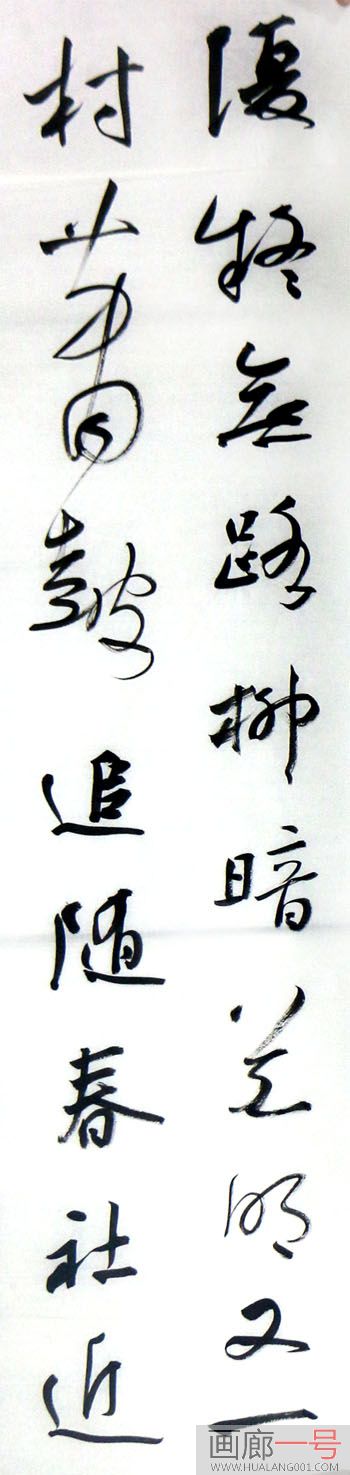 復疑無路柳暗花明又一
村簫鼓追随春社近
画廊一号
WWW.HUALANG001.COM